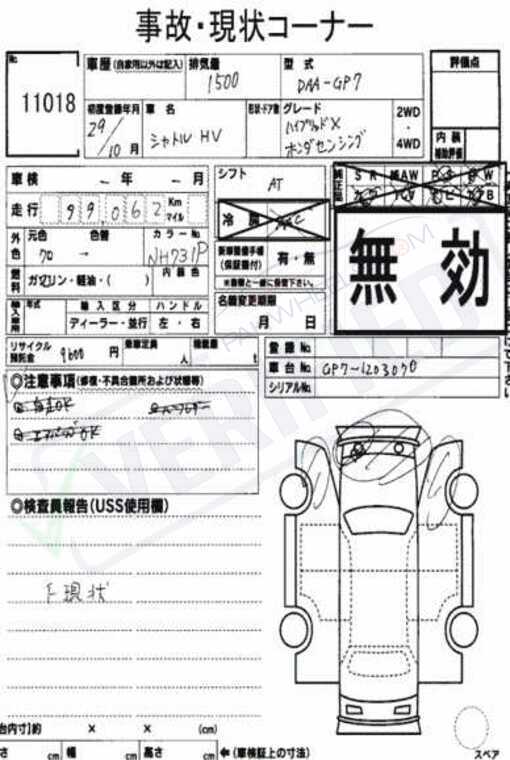 事故・現状コーナー
No
11018
車歴(自家用以外は記入)
排気量
1500
型式
DAA-GP7
評価点
初度登録年月
29/10月
車名
シャトル HV
形状・ドア数
グレード
ハイブリッドX
ホンダセンシング
2WD
・
4WD
内装
補助評価
車検 - 年 - 月
走行 99,062 Km マイル
シフト
AT
純正品
SR AW PS PW
冷房
AC
無効
外色
元色 色替
クロ →
カラーNo.
NH731P
燃料
ガソリン・軽油・( )
内装色
新車整備手帳
(保証書付)
有・無
※書類と一緒に保管下さい。
輸入車用
年式
輸入区分
ハンドル
ディーラー・並行
左・右
名義変更期限
月 日
リサイクル
預託金
9600 円
乗車定員
人
積載量
t
登録No.
車台No. GP7-1203070
シリアルNo.
◎注意事項(修復・不具合箇所および状態等)
自走OK
エアバッグOK
◎検査員報告(USS使用欄)
下現状
台内寸]約 × × (cm)
さ cm 幅 cm 高さ cm ←(車検証上の寸法)
スペア
VERIFIED